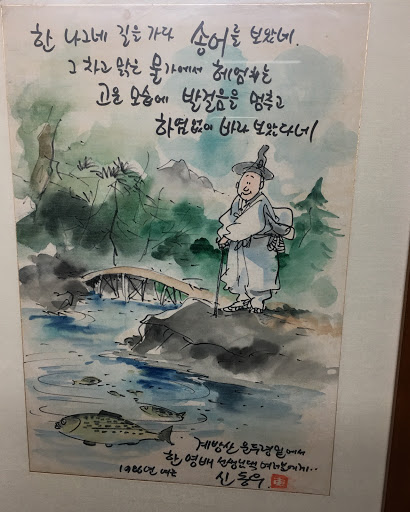 한 나그네 길을 가다 송어를 보았네.
그 차고 맑은 물가에서 헤엄치는
고운 모습에 발걸음을 멈추고
하염없이 바라 보았다네
계방산 운두령밑에서
한영배 선생님댁
신동우